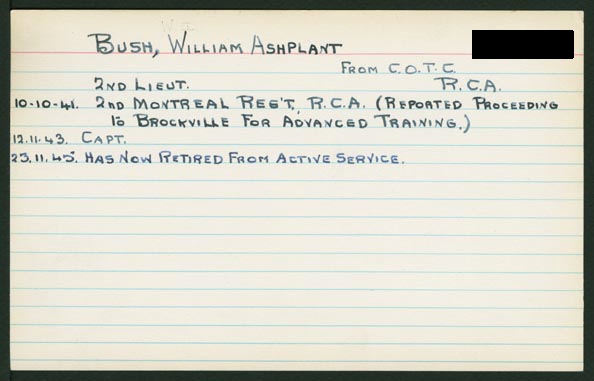 BUSH, WILLIAM ASHPLANT
FROM C.O.T.C.
2ND LIEUT. R.C.A.
10-10-41. 2ND MONTREAL REG'T, R.C.A. (REPORTED PROCEEDING
TO BROCKVILLE FOR ADVANCED TRAINING.)
12.11.43. CAPT.
23.11.45. HAS NOW RETIRED FROM ACTIVE SERVICE.